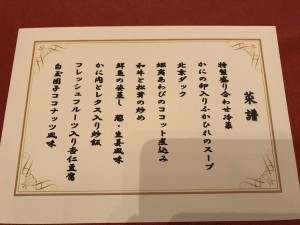 菜譜
特製盛り合わせ冷菜
かにの卵入りふかひれのスープ
北京ダック
蝦夷あわびのココット煮込み
和牛と松茸の炒め
鮮魚の姿蒸し 葱・生姜風味
かに肉とレタス入り炒飯
フレッシュフルーツ入り杏仁豆腐
白玉団子ココナッツ風味